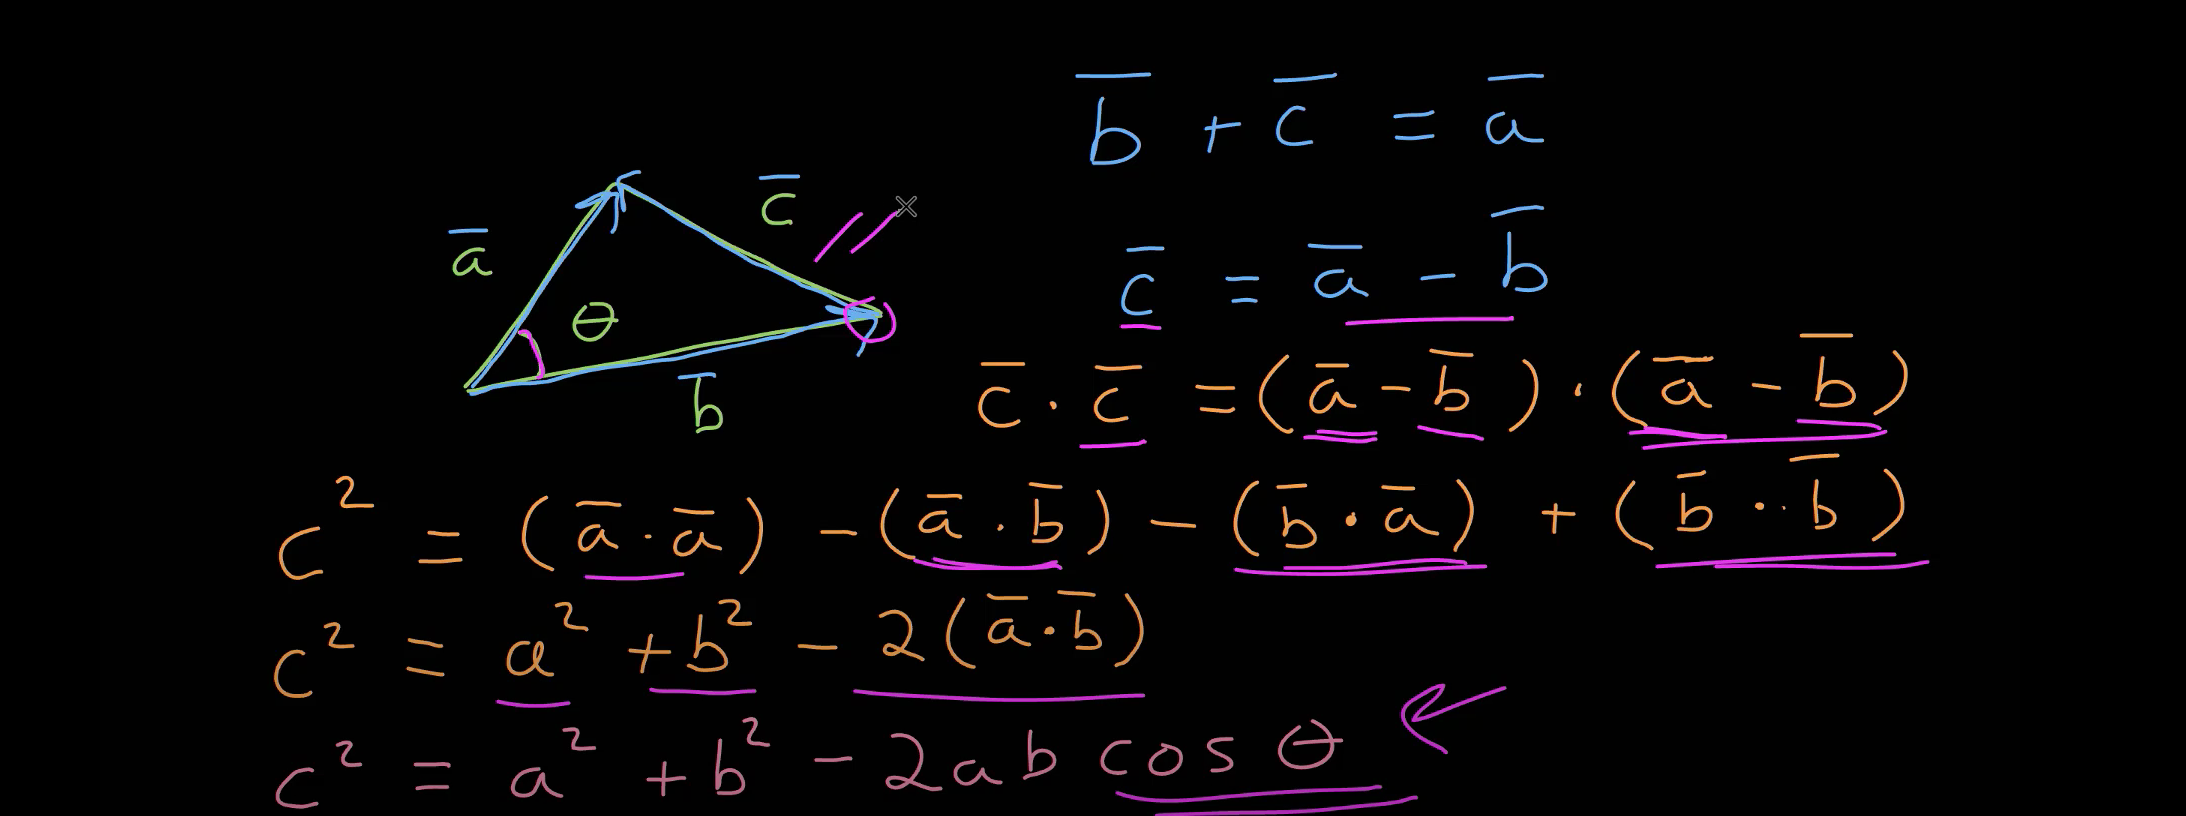 b̅ + c̅ = a̅
c̅
a̅
θ
b̅
c̅ = a̅ - b̅
c̅ · c̅ = (a̅ - b̅) · (a̅ - b̅)
c² = (a̅ · a̅) - (a̅ · b̅) - (b̅ · a̅) + (b̅ · b̅)
c² = a² + b² - 2(a̅ · b̅)
c² = a² + b² - 2ab cos θ